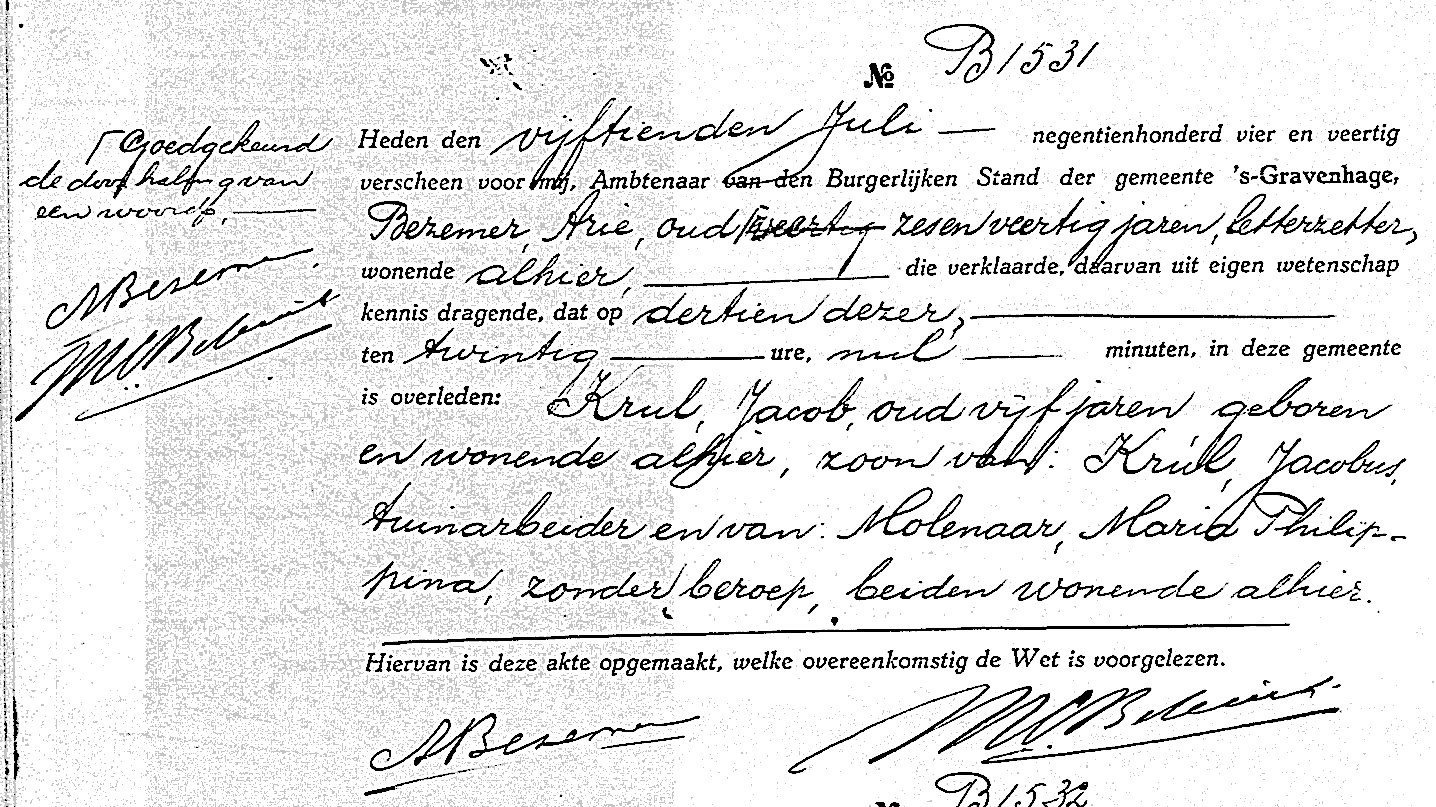 № B1531
Heden den vijftienden Juli — negentienhonderd vier en veertig
verscheen voor mij, Ambtenaar van den Burgerlijken Stand der gemeente 's-Gravenhage,
Bezemer, Arie, oud ⌈veertig zesenveertig jaren, letterzetter,
wonende alhier, die verklaarde, daarvan uit eigen wetenschap
kennis dragende, dat op dertien dezer,
ten twintig ure, nul minuten, in deze gemeente
is overleden: Krul, Jacob, oud vijf jaren geboren
en wonende alhier, zoon van: Krul, Jacobus,
tuinarbeider en van: Molenaar, Maria Philip-
pina, zonder beroep, beiden wonende alhier.
Hiervan is deze akte opgemaakt, welke overeenkomstig de Wet is voorgelezen.
ABezemer
⌈Goedgekeurd
de doorhaling van
een woord,
ABezemer
№ B1532